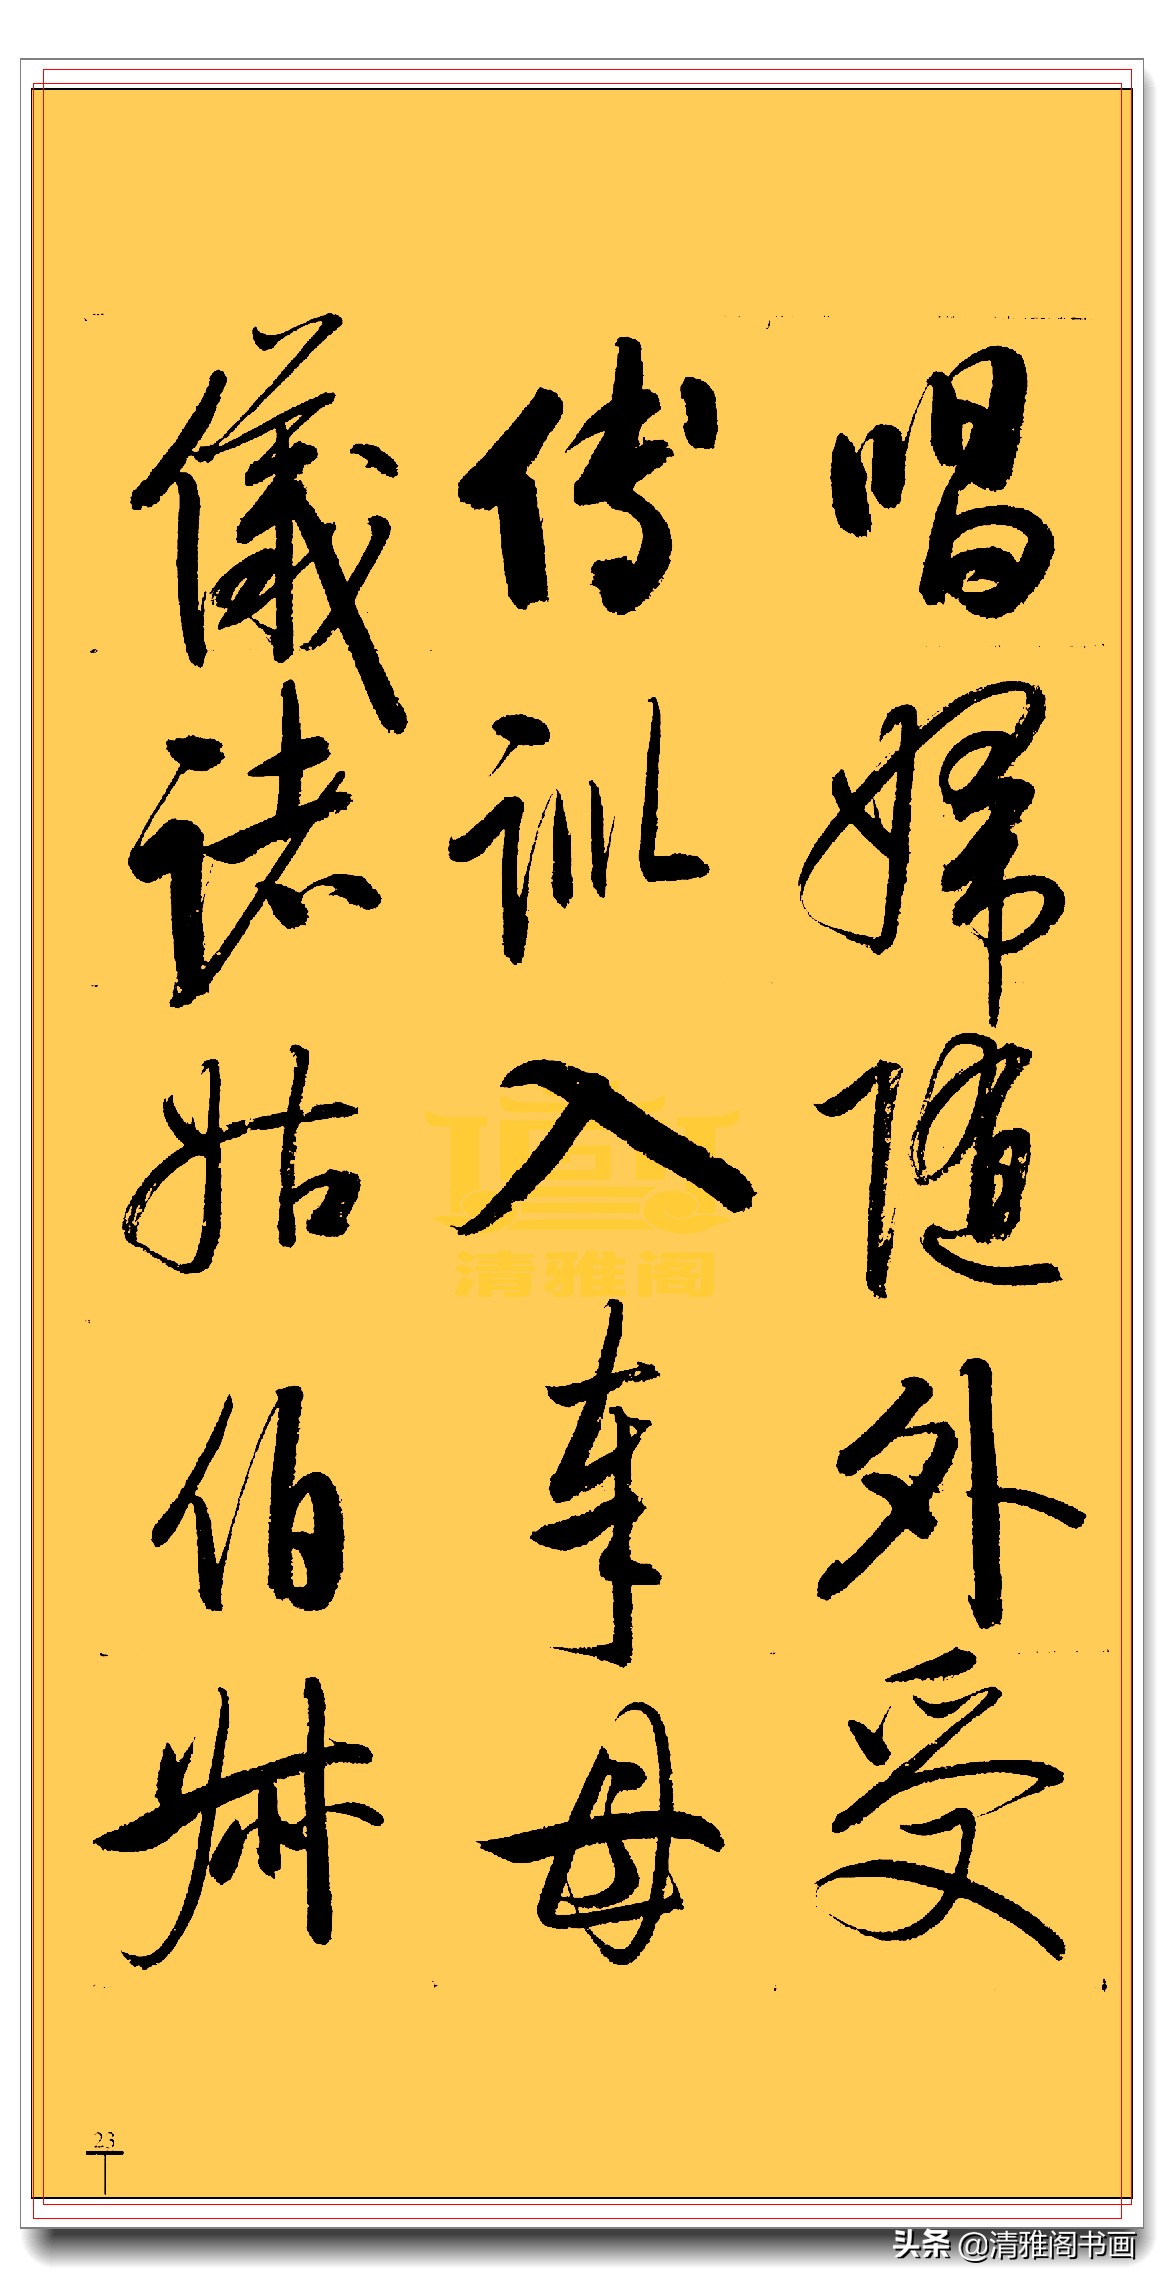 唱婦隨外受
傅訓入奉母
儀諸姑伯叔
清雅阁
23
头条 @清雅阁书画